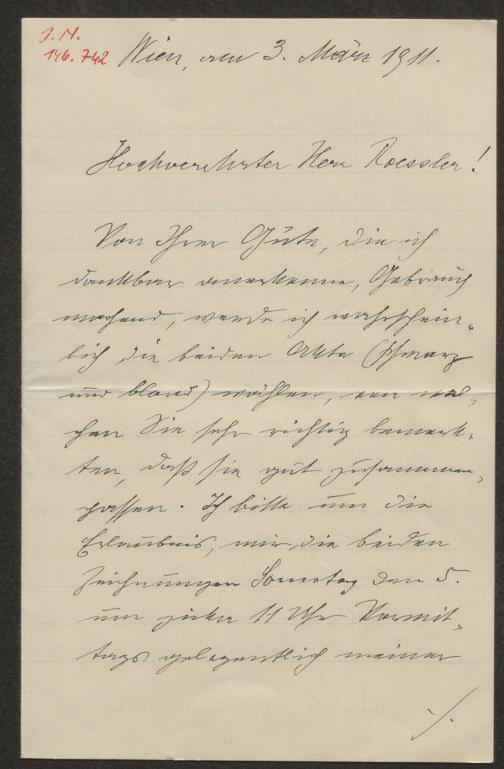 J.N.
146.742
Wien, am 3. März 1911.
Hochverehrter Herr Roessler!
Von Ihrer Güte, die ich
dankbar anerkenne, Gebrauch
machend, werde ich wahrschein„
lich die beiden Akte (schwarz
und blond) wählen, von wel„
chen Sie sehr richtig bemerk„
ten, daß sie gut zusammen„
passen. Ich bitte um die
Erlaubnis, mir die beiden
Zeichnungen Sonntag den 5.
um zirka 11 Uhr Vormit„
tags gelegentlich meiner
./.